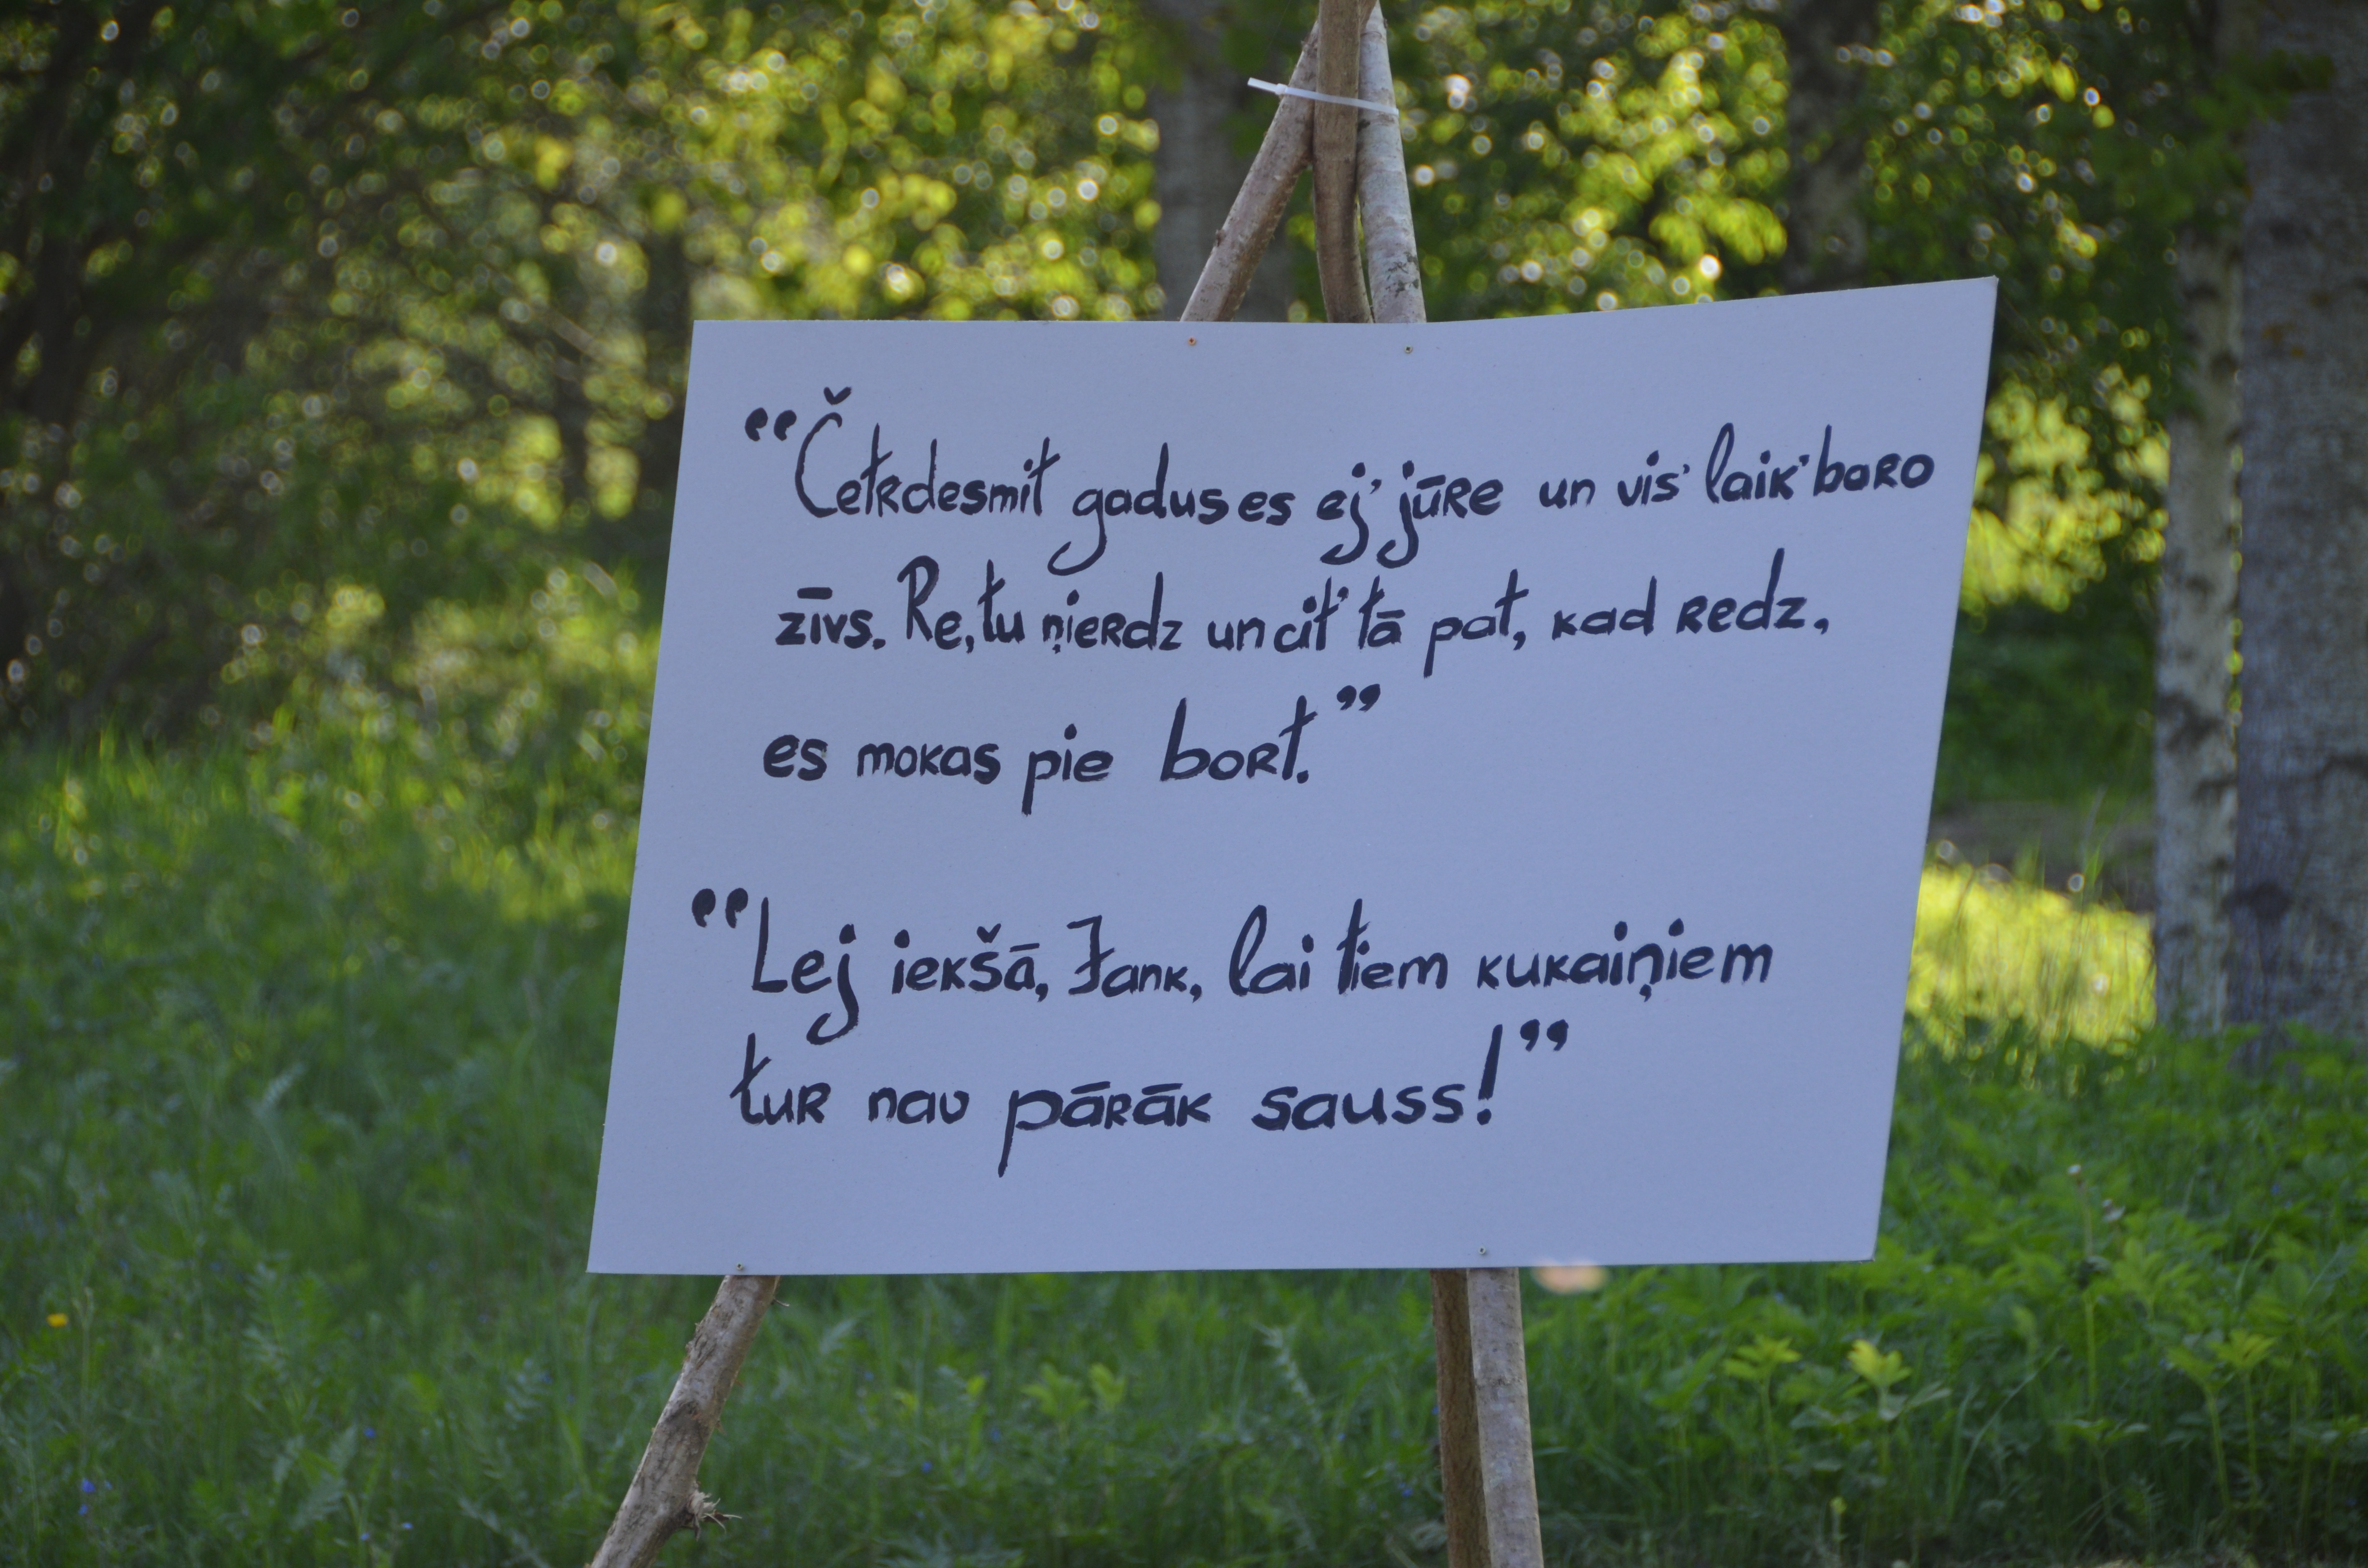 “Četrdesmit gadus es ej’ jūre un vis’ laik’ baro
zīvs. Re, tu ņierdz un cit’ tā pat, kad redz,
es mokas pie bort.”
“Lej iekšā, Jank, lai tiem kukaiņiem
tur nav pārāk sauss!”